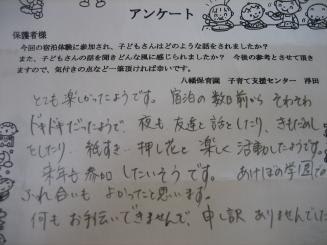 アンケート
保護者様
今回の宿泊体験に参加され、子どもさんはどのような話をされましたか？
また、子どもさんの話を聞きどんな風に感じられましたか？　今後の参考とさせて頂き
ますので、気付きの点など一筆頂ければ幸いです。
八幡保育園　子育て支援センター　浮田
とても楽しかったようです。宿泊の数日前から そわそわ
ドキドキだったようで、夜も友達と話をしたり、きもだめし
をしたり、紙すき…押し花と楽しく活動したようです。
来年も参加したいそうです。あけぼの学園での
ふれ合いも よかったと思います。
何もお手伝いできませんで、申し訳ありませんでした